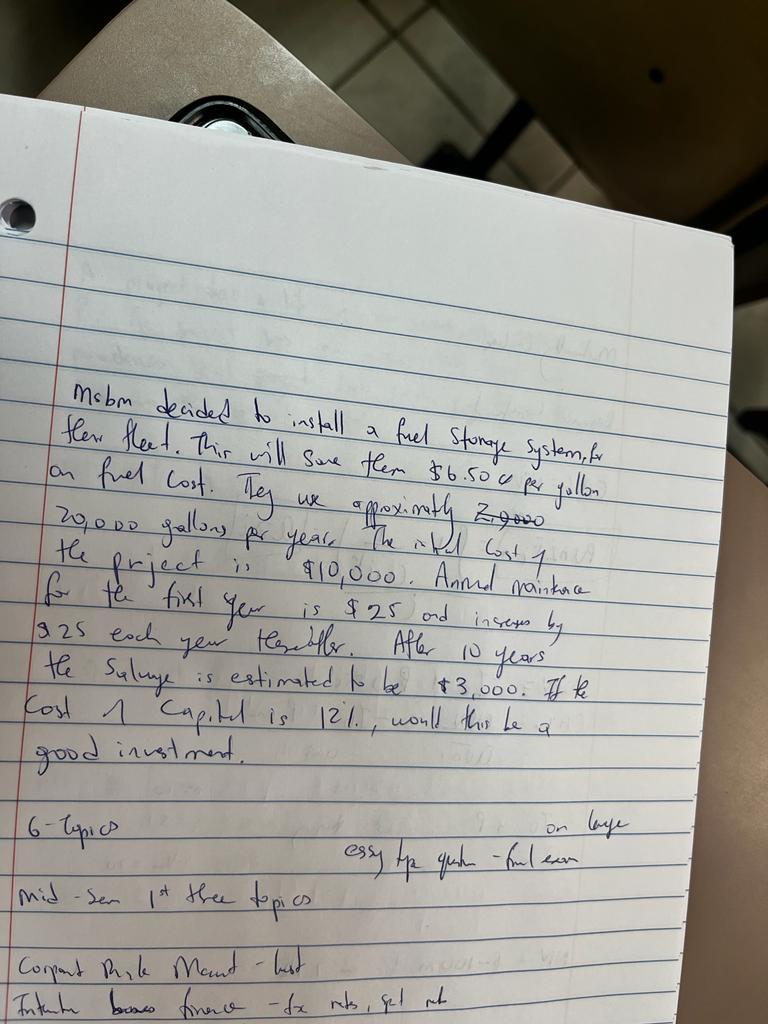 Mcbm decided to install a fuel Storage System, for
their fleet. This will Save them $6.50 per gallon
on fuel Cost. They use approximately
20,000 gallons per year. The initial Cost of
the project is $10,000. Annual maintence
for the first year is $25 and increases by
$25 each year thereafter. After 10 years
the Salvage is estimated to be $3,000. If the
Cost of Capital is 12%, would this be a
good investment.
6-Topics on
essay type question - final exam
Mid-Sem 1st three topics
Mamt -
finance - fx rates,